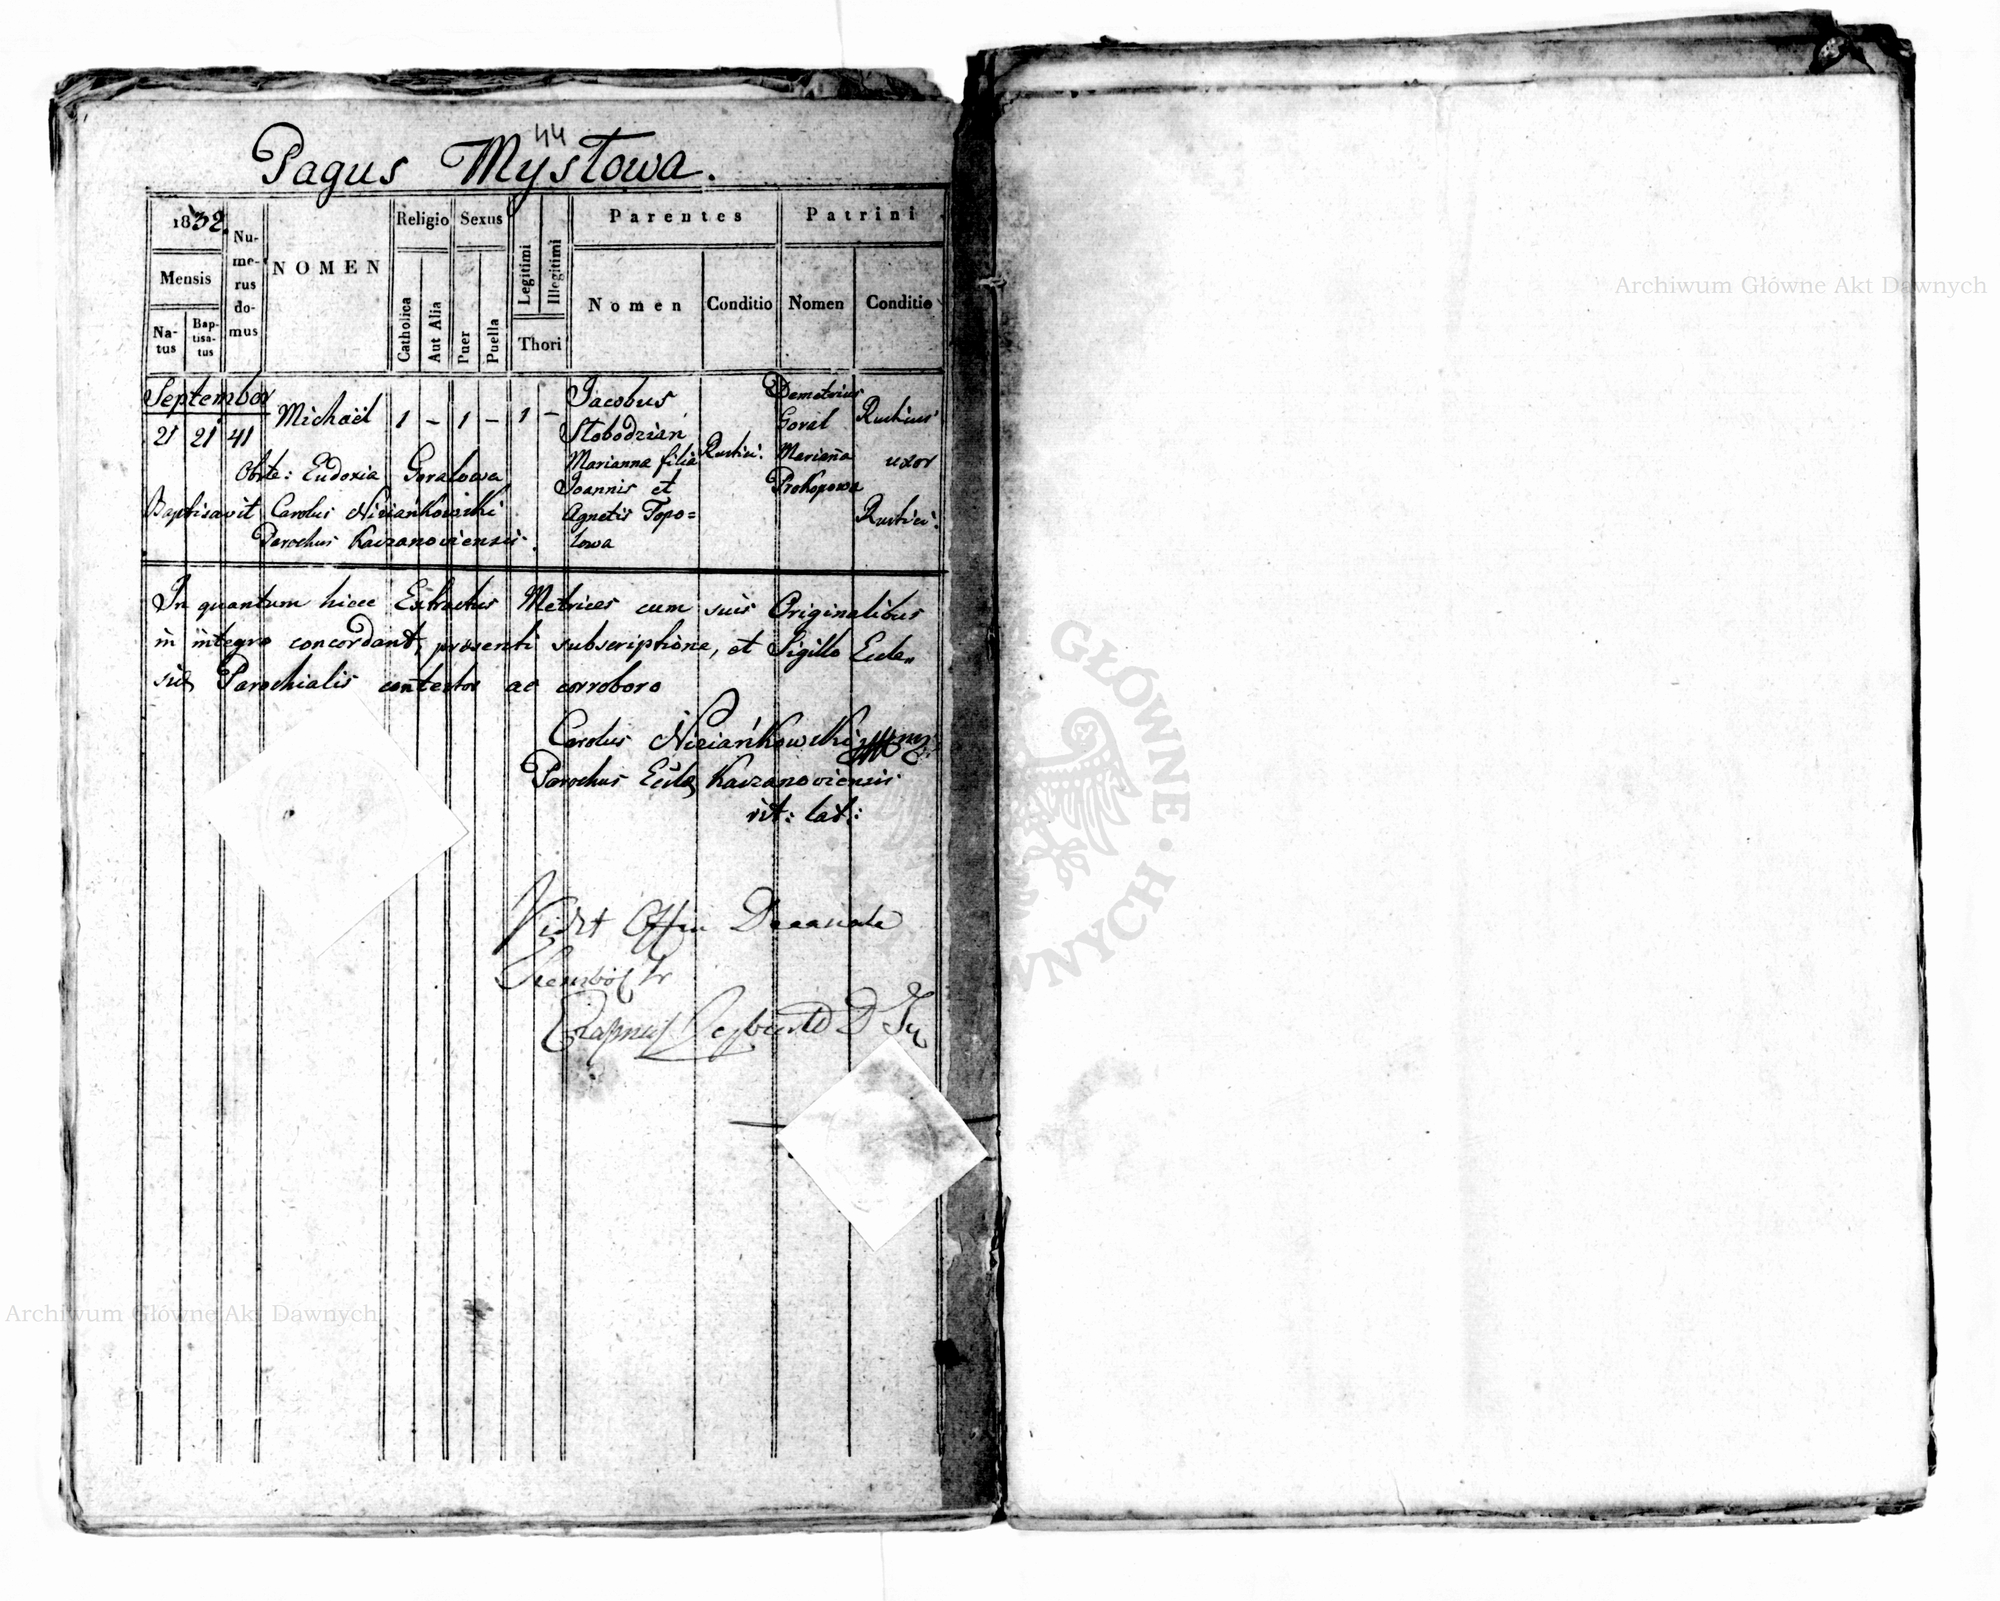 44
Pagus Mysłowa.
1832.
Mensis
Na-
tus
Bap-
tisa-
tus
Nu-
me-
rus
do-
mus
NOMEN
Religio
Catholica
Aut Alia
Sexus
Puer
Puella
Legitimi
Illegitimi
Thori
Parentes
Nomen
Conditio
Patrini
Nomen
Conditio
September
21 21 41 Michaël 1 - 1 - 1 -
Jacobus
Słobodzian
Marianna filia
Joannis et
Agnetis Topo=
lowa
Rustici.
Demetrius
Goral
Rusticus
Marianna
uxor
Prokopowa
Rustici.
Obste: Eudoxia Goralowa
Baptisavit Carolus Niziańkowski
Parochus Kaczanoviensis.
In quantum hicce Extractus Metrices cum suis Originalibus
in integro concordant, presenti subscriptione, et Sigillo Eccle„
siæ Parochialis contestor ac corroboro
Carolus Niziańkowski mp.
Parochus Eccle Kaczanoviensis
rit: lat:
Vidit Offiu Decanale
Archiwum Główne Akt Dawnych
Archiwum Główne Akt Dawnych
GŁÓWNE